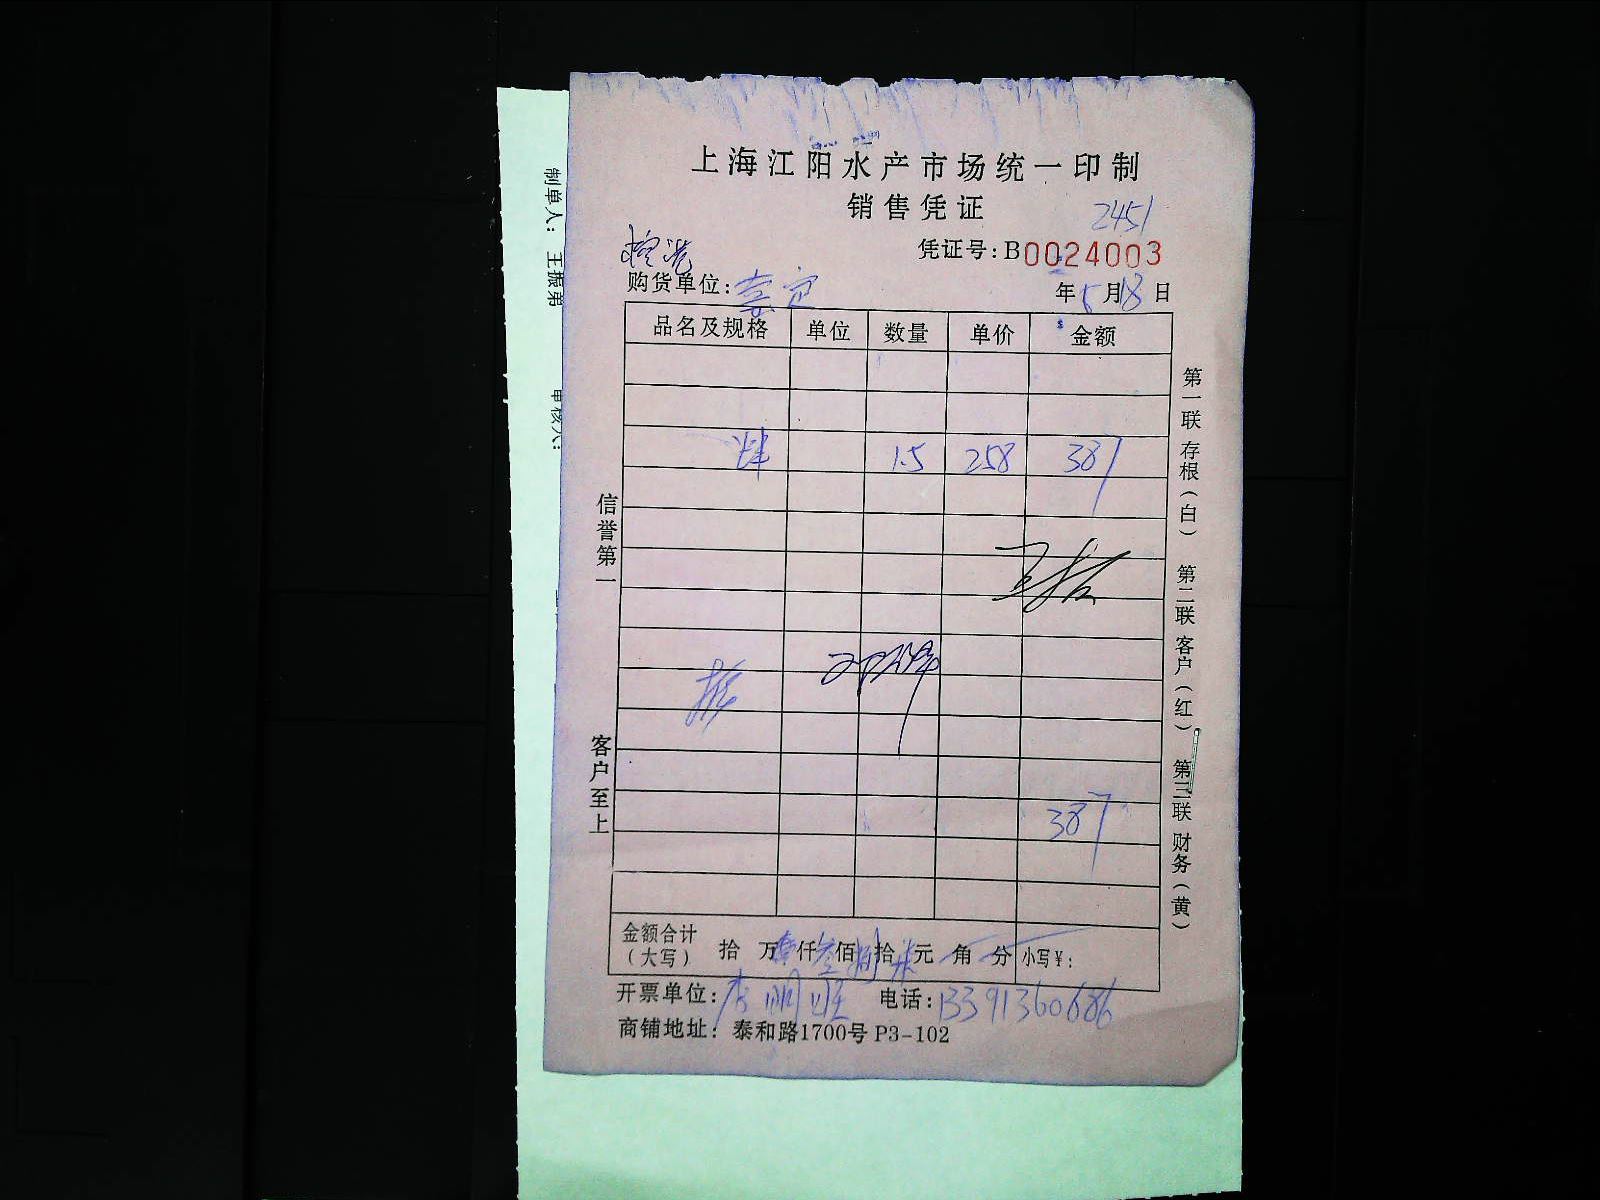 上海江阳水产市场统一印制
销售凭证
2451
凭证号:B0024003
购货单位:嘉定
年5月18日
品名及规格 单位 数量 单价 金额
1.5 258 387
387
金额合计(大写) 拾 万 仟叁佰捌拾柒元 角 分 小写¥:
开票单位:李 电话:13391360686
商铺地址: 泰和路1700号 P3-102
信誉第一
客户至上
第一联 存根(白) 第二联 客户(红) 第三联 财务(黄)
制单人: 王振弟
审核人: